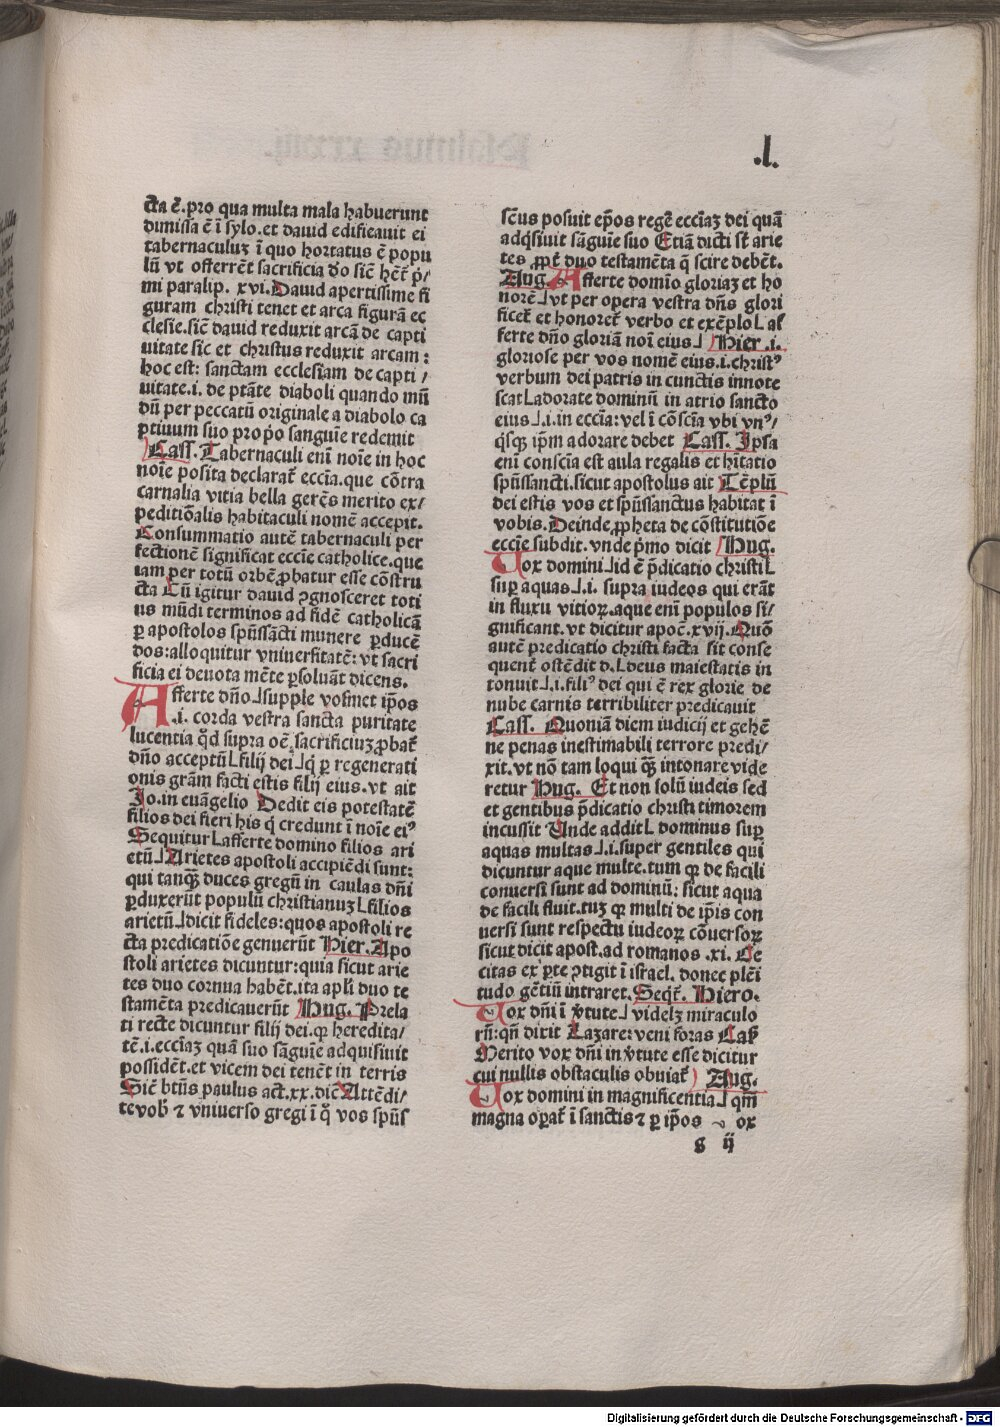 .l.
cta ē.pro qua multa mala habuerunt
dimissa ē ī sylo.et dauid edificauit ei
tabernaculuʒ ī quo hortatus ē popu
lū vt offerrēt sacrificia dō sic̄ hēt̄ p̄/
mi paralip. xvi.Dauid apertissime fi
guram christi tenet et arca figurā ec
clesie.sic̄ dauid reduxit arcā de capti
uitate sic et christus reduxit arcam:
hoc est: sanctam ecclesiam de capti/
uitate.i. de ptāte diaboli quando mū
dū per peccatū originale a diabolo ca
ptiuum suo prop̄o sanguīe redemit
Cass. Tabernaculi enī noīe in hoc
noīe posita declarat̄ eccīa.que cōtra
carnalia vitia bella gerēs merito ex/
peditiōalis habitaculi nomē accepit.
Consummatio autē tabernaculi per
fectionē significat eccīe catholice.que
iam per totū orbē ꝓbatur esse cōstru
cta Cū igitur dauid ꝯgnosceret toti
us mūdi terminos ad fidē catholicā
ꝑ apostolos spūssācti munere ꝑducē
dos:alloquitur vniuersitatē: vt sacri
ficia ei deuota mēte ꝑsoluāt dicens.
Afferte dño⅃supple vosmet ip̄os
.i. corda vestra sancta puritate
lucentia q̄d supra oē sacrificiuʒ ꝓbat̄
dño acceptū L filij dei⅃q̄ ꝑ regenerati
onis grām facti estis filij eius.vt ait
Jo.in euāgelio Dedit eis potestatē
filios dei fieri his q̄ credunt ī noīe ei⁹
Sequitur L afferte domino filios ari
etū⅃Arietes apostoli accipiēdi sunt:
qui tanqᷓ duces gregū in caulas dñi
ꝑduxerūt populū christianuʒ L filios
arietū⅃dicit fideles:quos apostoli re
cta predicatiōe genuerūt Hier.Apo
stoli arietes dicuntur:quia sicut arie
tes duo cornua habēt.ita apl̄i duo te
stamēta predicauerūt Hug. Prela
ti recte dicuntur filij dei.qꝛ heredita/
tē.i.eccīaʒ quā suo sāguīe adquisiuit
possidēt.et vicem dei tenēt in terris
Sic̄ btūs paulus act.xx.dic̄ Attēdi/
te vob̄ ⁊ vniuerso gregi ī q̄ vos spūs
scūs posuit ep̄os regē eccīaʒ dei quā
adq̄siuit sāguīe suo Etiā dicti st̄ arie
tes ꝓpt̄ duo testamēta q̄ scire debēt.
Aug. Afferte domīo gloriaʒ et ho
norē⅃vt per opera vestra dñs glori
ficet̄ et honoret̄ verbo et exēplo L af
ferte dño gloriā noī eius⅃ Hier.i.
gloriose per vos nomē eius.i.christ⁹
verbum dei patris in cunctis innote
scat L adorate dominū in atrio sancto
eius⅃.i.in eccīa:vel ī cōscīa vbi vn⁹/
q̄sqꝫ ip̄m adorare debet Cass. Ipsa
enī conscīa est aula regalis et hītatio
spūssancti.sicut apostolus ait Tēplū
dei estis vos et spūssanctus habitat ī
vobis.Deinde ꝓpheta de cōstitutiōe
eccīe subdit.vnde p̄mo dicit Hug.
Uox domini⅃id ē p̄dicatio christi L
suꝑ aquas⅃.i. supra iudeos qui erāt
in fluxu vitioꝝ.aque enī populos si/
gnificant.vt dicitur apoc̄.xvij.Quō
autē predicatio christi facta sit conse
quent̄ ostēdit d.L deus maiestatis in
tonuit⅃.i.fili⁹ dei qui ē rex glorie de
nube carnis terribiliter predicauit
Cass. Quoniā diem iudicij et gehē
ne penas inestimabili terrore predi/
xit.vt nō tam loqui qᷓ intonare vide
retur Hug. Et non solū iudeis sed
et gentibus p̄dicatio christi timorem
incussit Unde addit L dominus suꝑ
aquas multas⅃.i.super gentiles qui
dicuntur aque multe.tum qꝛ de facili
conuersi sunt ad dominū: sicut aqua
de facili fluit.tuʒ qꝛ multi de ip̄is con
uersi sunt respectu iudeoꝝ cōuersoꝝ
sicut dicit apost.ad romanos .xi. Ce
citas ex ꝑte ꝯtigit ī israel. donec plēi
tudo gētiū intraret.Seqt̄. Hiero.
Uox dñi ī v̄tute⅃ videlʒ miraculo
rū:qn̄ dixit Lazare:veni foras Cass̄
Merito vox dñi in v̄tute esse dicitur
cui nullis obstaculis obuiat̄ Aug.
Uox domini in magnificentia⅃qm̄
magna oꝑat̄ ī sanctis ⁊ ꝑ ip̄os ox
s ij
Digitalisierung gefördert durch die Deutsche Forschungsgemeinschaft - DFG